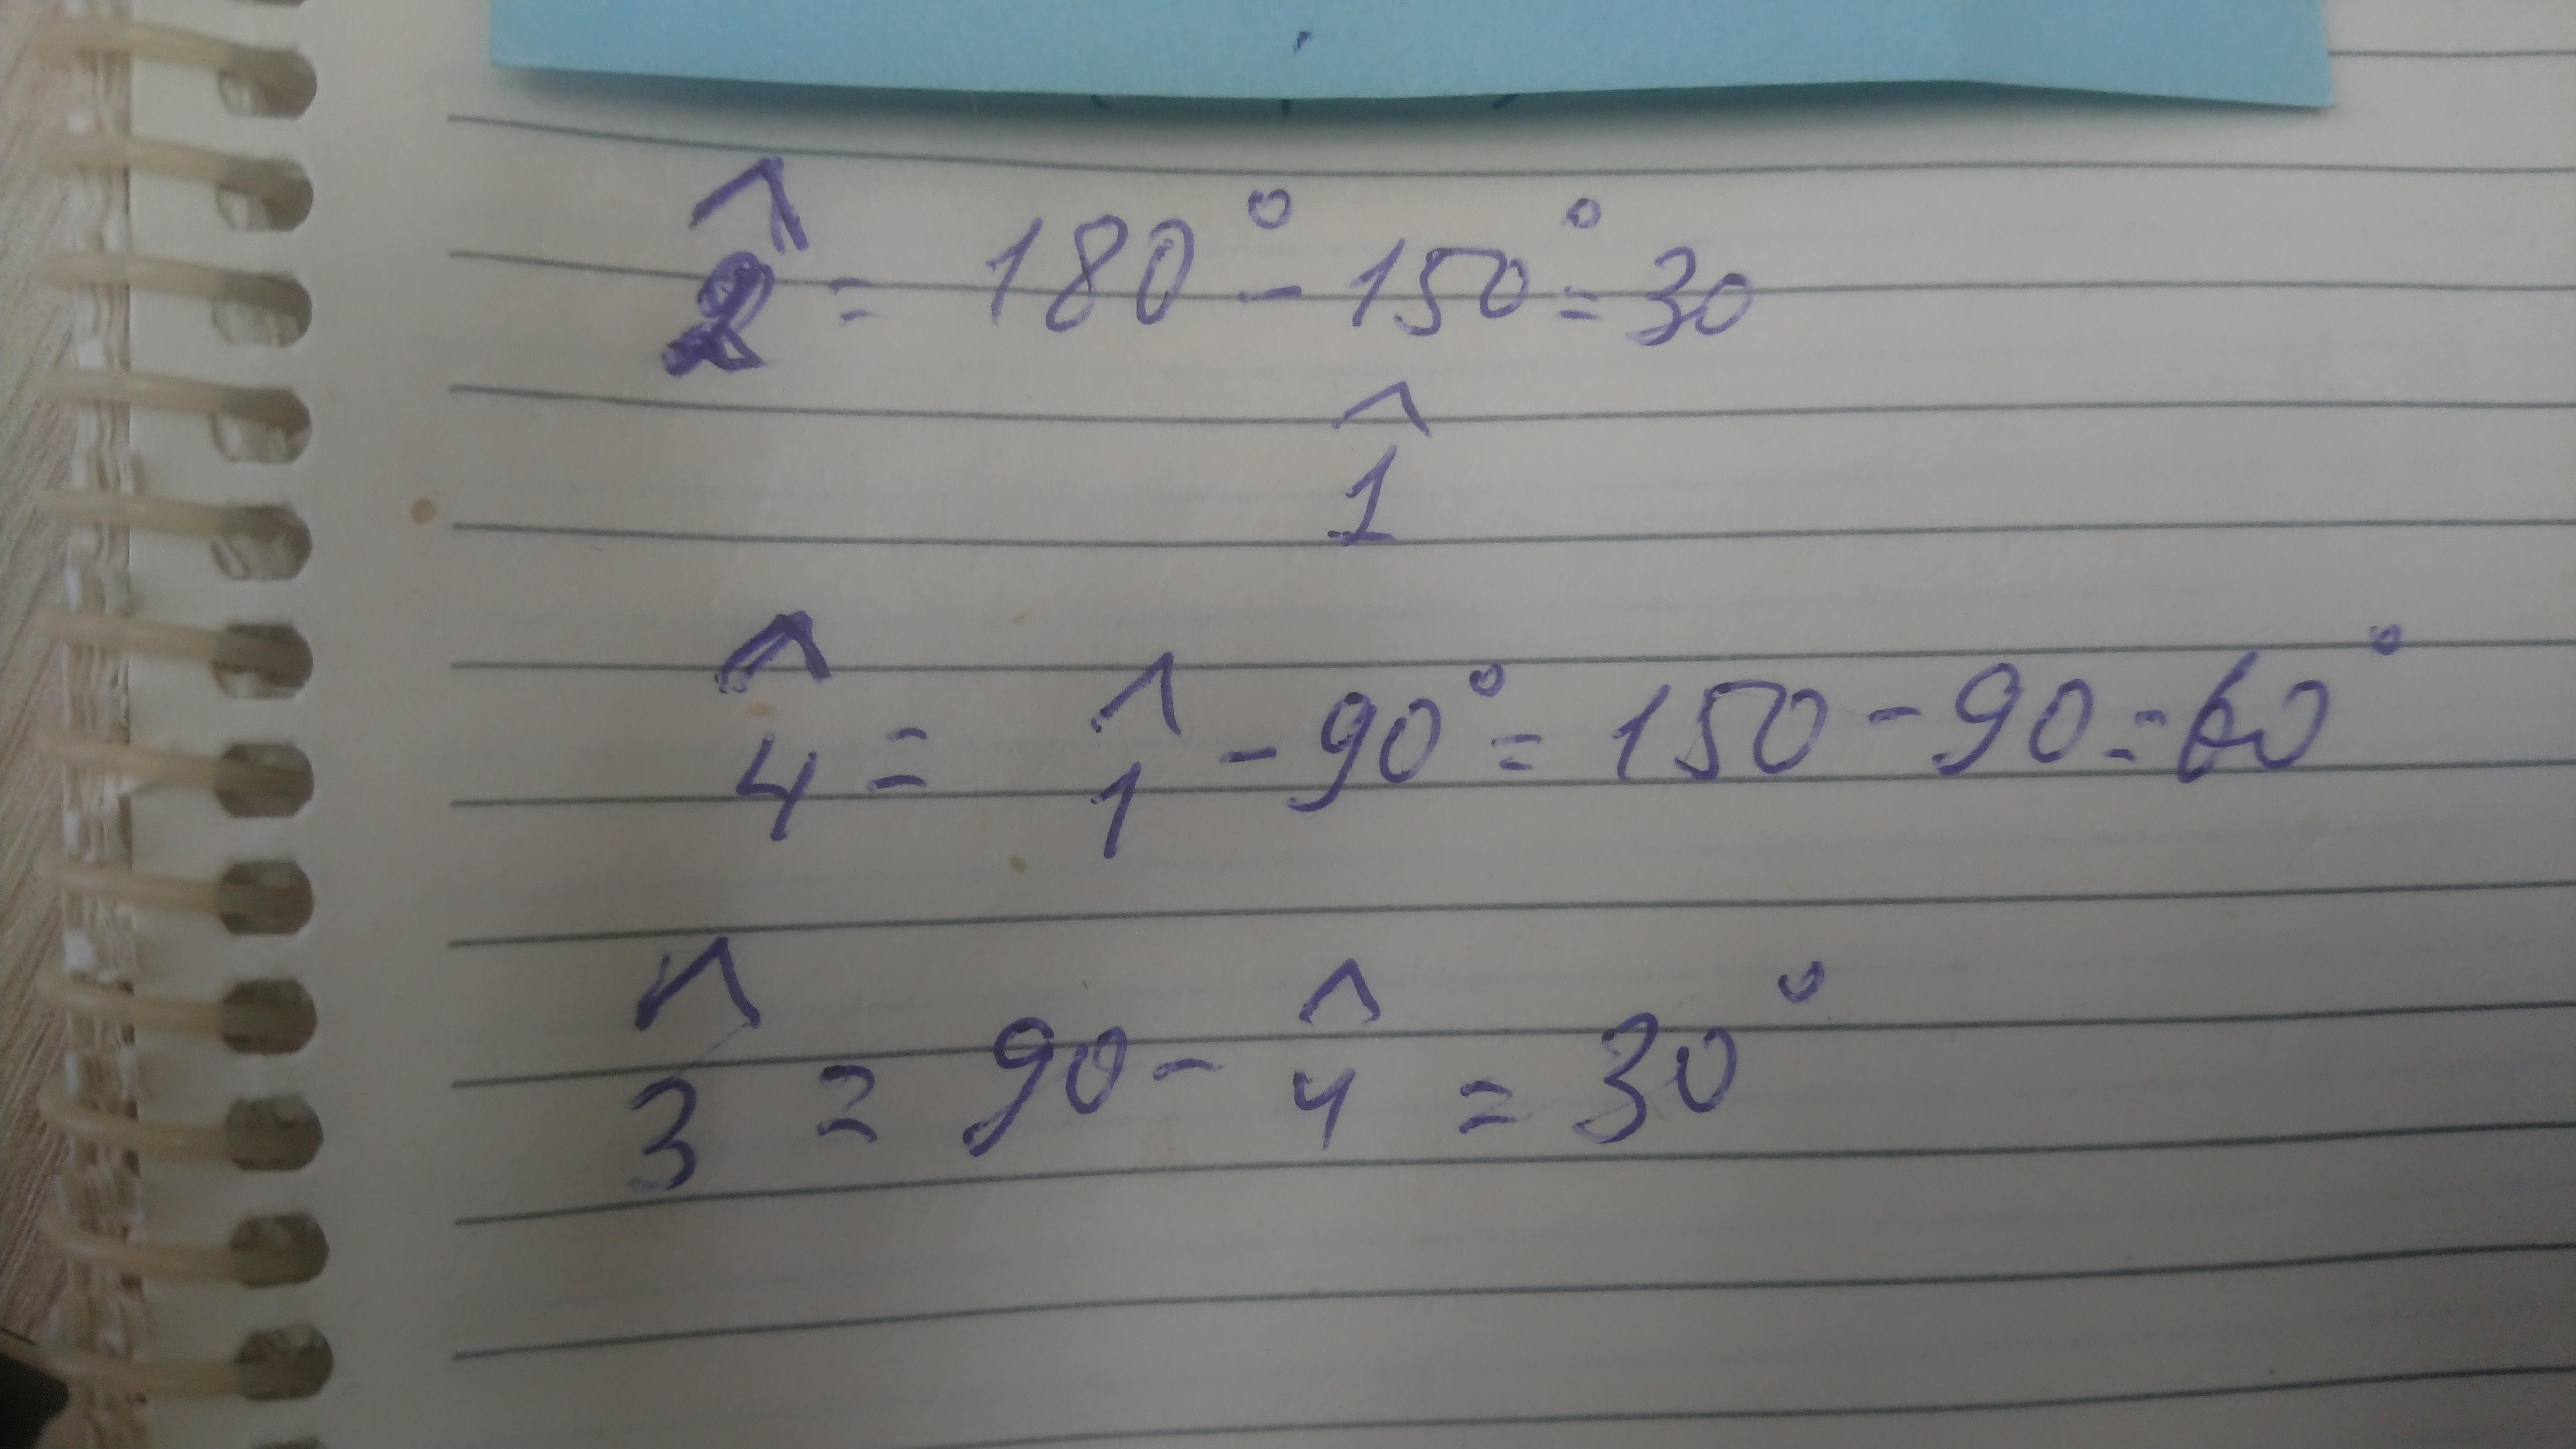 2̂ = 180° - 150° = 30
1̂
4̂ = 1̂ - 90° = 150 - 90 = 60°
3̂ = 90 - 4̂ = 30°